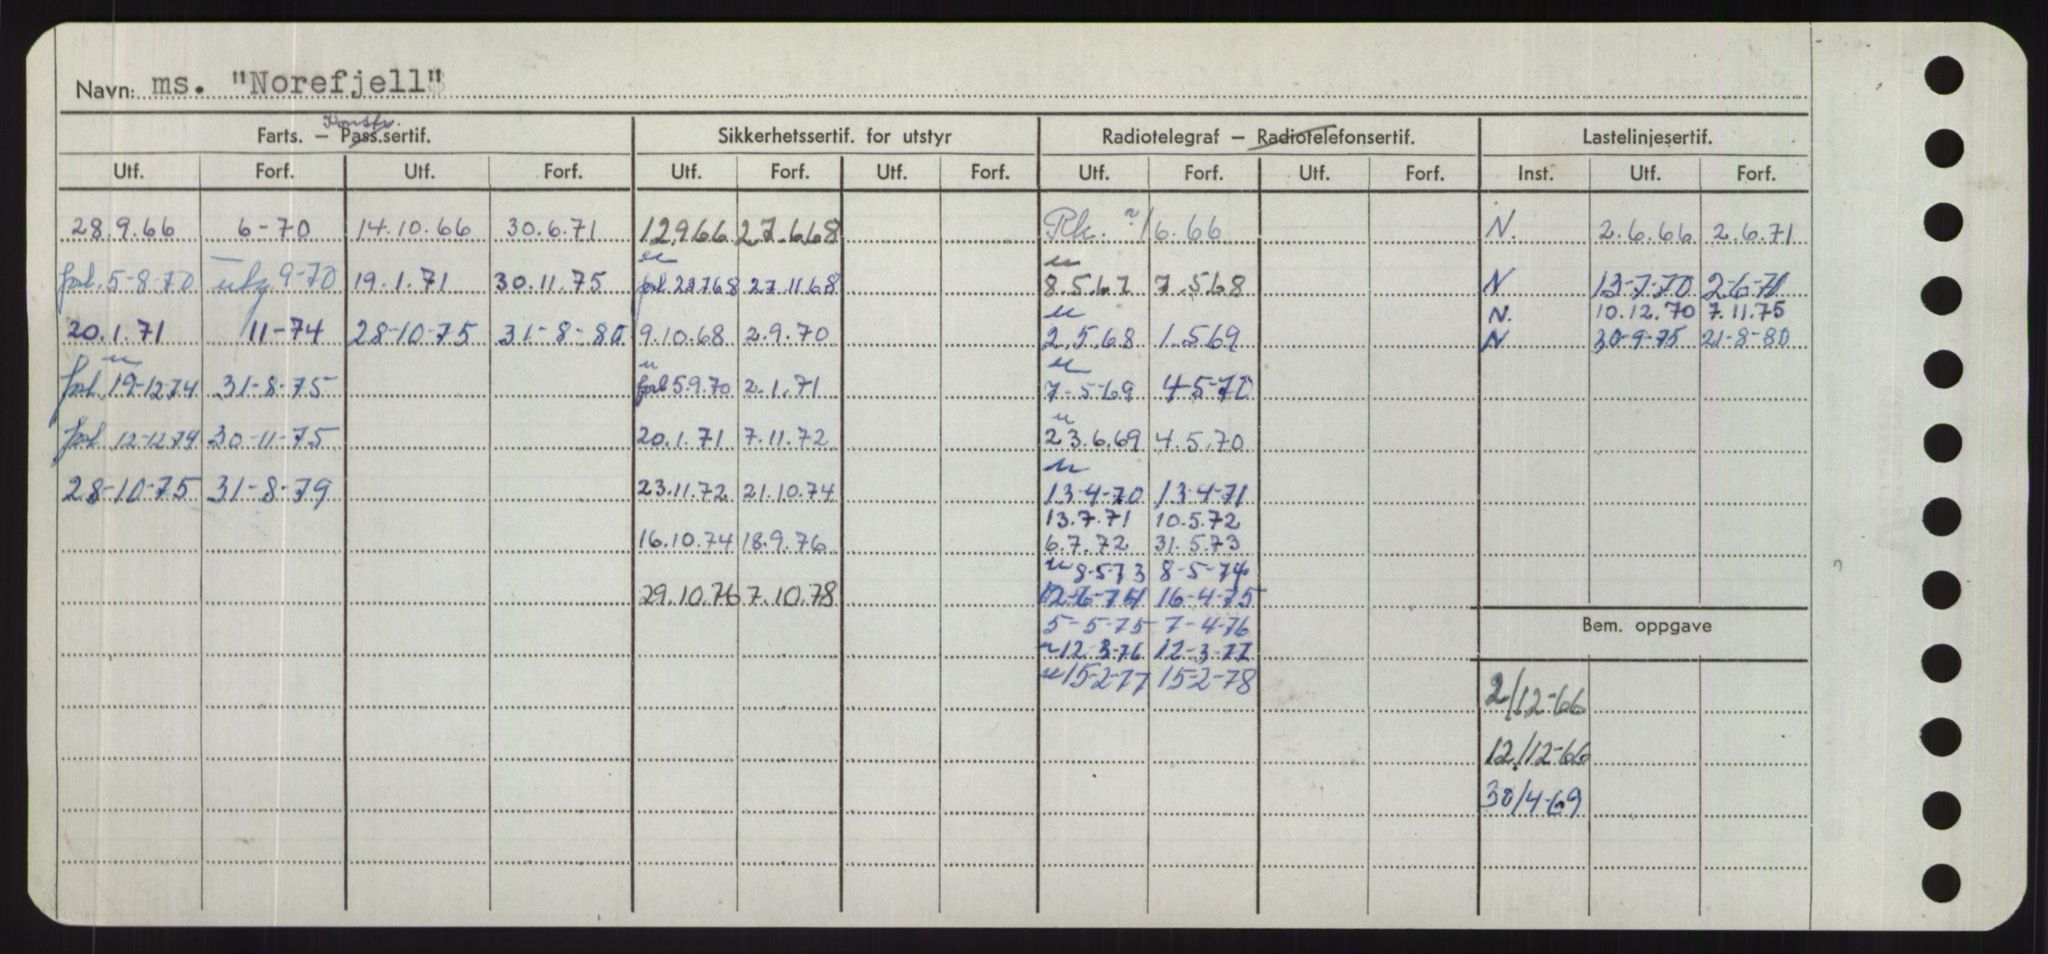 Navn: ms. "Norefjell"
Konstr.
Farts. — Pass.sertif. Sikkerhetssertif. for utstyr Radiotelegraf — Radiotelefonsertif. Lastelinjesertif.
Utf. Forf. Utf. Forf. Utf. Forf. Utf. Forf. Utf. Forf. Utf. Forf. Inst. Utf. Forf.
28.9.66 6-70 14.10.66 30.6.71 12.9.66 27.6.68 Rk. 2/6.66 N. 2.6.66 2.6.71
forl. 5-8-70 utg. 9-70 19.1.71 30.11.75 forl 23768 27.11.68 8.5.67 7.568 N 13-7-70 2-6-71
N. 10.12.70 7.11.75
20.1.71 11-74 28-10-75 31-8-80 9.10.68 2.9.70 2.5.68 1.569 N 30-9-75 21-8-80
forl. 19-12-74 31-8-75 forl 5.9.70 2.1.71 7-5-69 4-5-70
forl. 12-12-74 30-11-75 20.1.71 7.11.72 23.6.69 4.5.70
28-10-75 31-8-79 23.11.72 21.10.74 13-4-70 13-4-71
13.7.71 10.5.72
16.10.74 18.9.76 6.7.72 31.5.73
8-573 8-5-74
29.10.76 7.10.78 12-6-74 16-4-75
5-5-75 7-4-76
Bem. oppgave
12-3-76 12-3-77
15-2-77 15-2-78
2/12-66
12/12-66
30/4-69